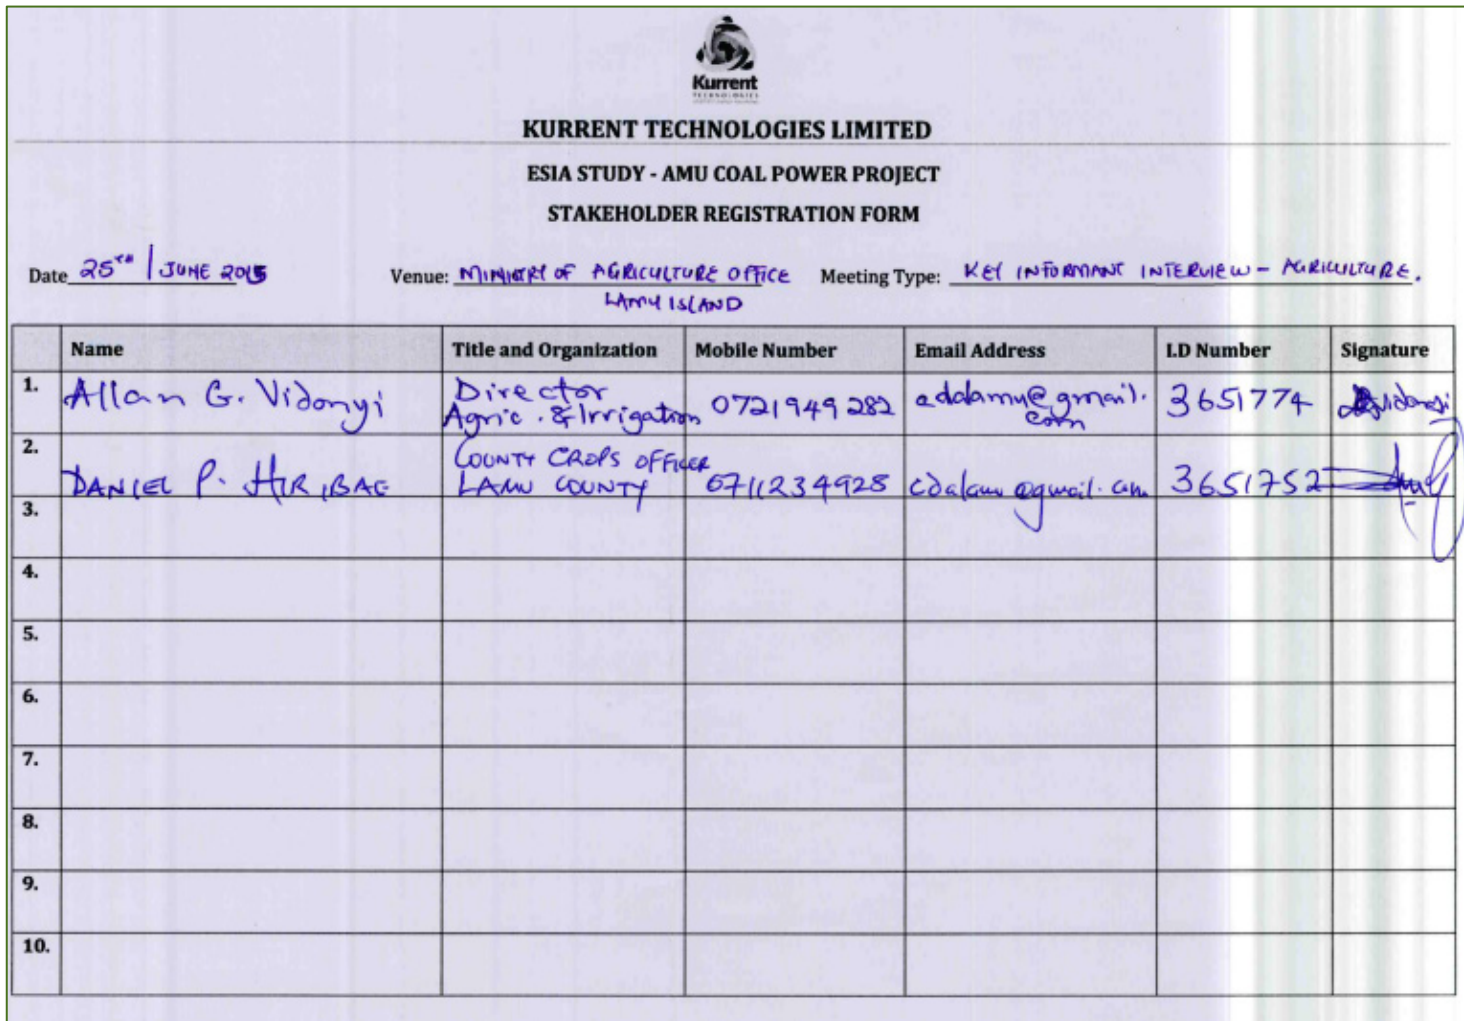 Kurrent
TECHNOLOGIES
KURRENT TECHNOLOGIES LIMITED
ESIA STUDY - AMU COAL POWER PROJECT
STAKEHOLDER REGISTRATION FORM
Date 25TH / JUNE 2015 Venue: MINISTRY OF AGRICULTURE OFFICE Meeting Type: KEY INFORMANT INTERVIEW - AGRICULTURE.
LAMU ISLAND
Name Title and Organization Mobile Number Email Address I.D Number Signature
1. Allan G. Vidonyi Director 0721949282 addamu@gmail. 3651774
Agric. & Irrigation com
2. COUNTY CROPS OFFICER
DANIEL P. HIRIBAE LAMU COUNTY 0711234928 cdalamu@gmail.com 3651752
3.
4.
5.
6.
7.
8.
9.
10.